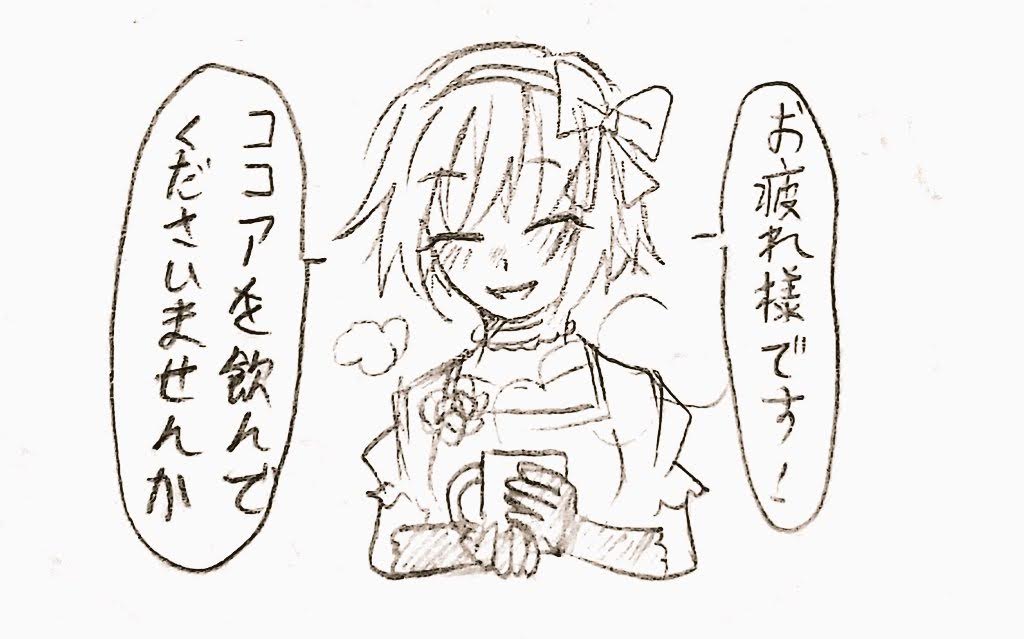 お疲れ様です！
ココアを飲んで
くださいませんか